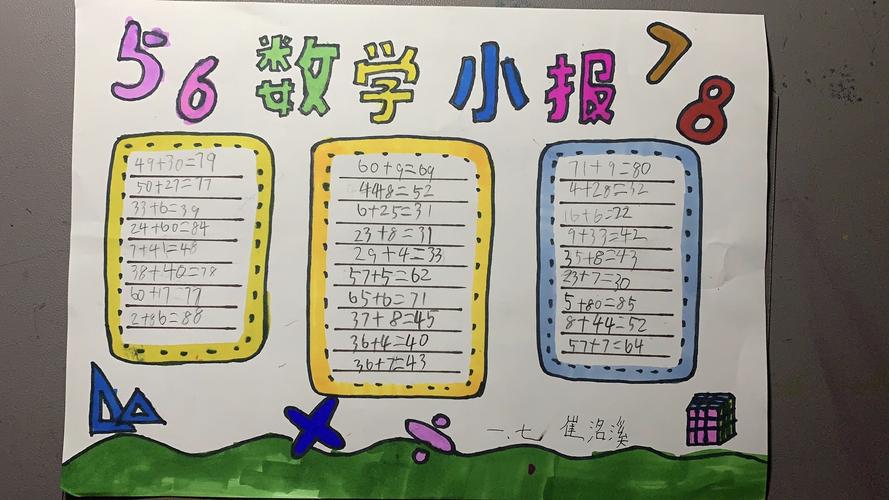 5 6 数学小报 7 8
49+30=79
50+27=77
33+6=39
24+60=84
7+41=48
38+40=78
60+17=77
2+86=88
60+9=69
44+8=52
6+25=31
23+8=31
29+4=33
57+5=62
65+6=71
37+8=45
36+4=40
36+7=43
71+9=80
4+28=32
16+6=22
9+33=42
35+8=43
23+7=30
5+80=85
8+44=52
57+7=64
一、七 崔洺溪